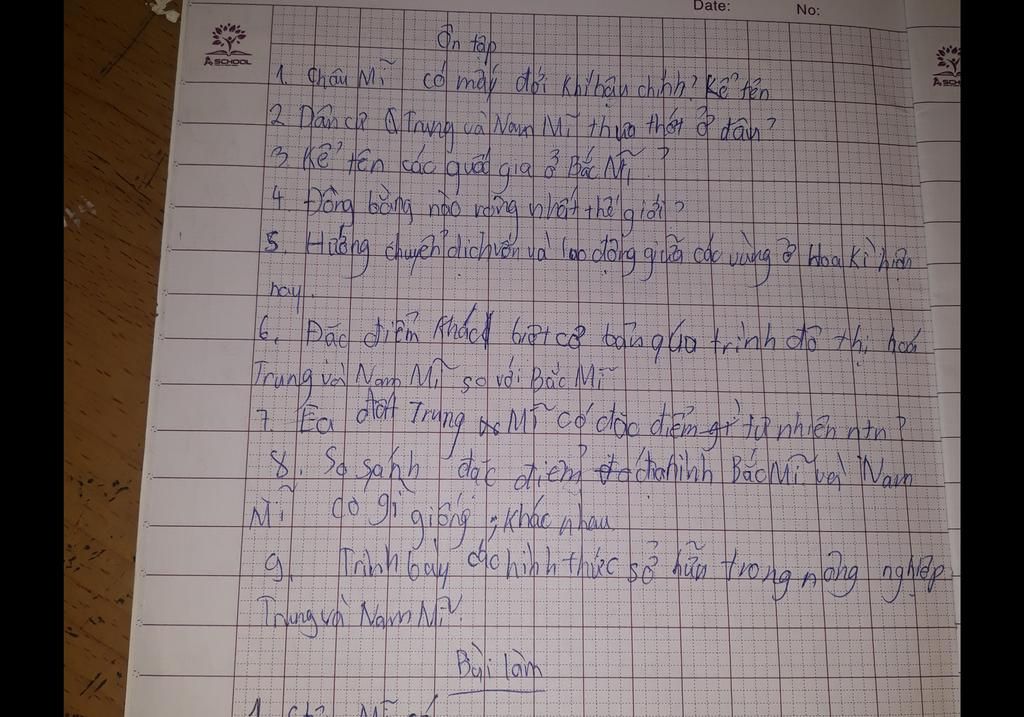 Date: No:
A SCHOOL
Ôn tập
1. Châu Mĩ có mấy đới khí hậu chính? Kể tên
2. Dân cư ở Trung và Nam Mĩ thưa thớt ở đâu?
3. Kể tên các quốc gia ở Bắc Mĩ?
4. Đồng bằng nào rộng nhất thế giới?
5. Hướng chuyển dịch vốn và lao động giữa các vùng ở Hoa Kì hiện
nay.
6. Đặc điểm khác biệt cơ bản quá trình đô thị hoá
Trung và Nam Mĩ so với Bắc Mĩ
7. Eo đất Trung Mĩ có đặc điểm tự nhiên ntn?
8. So sánh đặc điểm địa hình Bắc Mĩ và Nam
Mĩ có gì giống, khác nhau
9. Trình bày các hình thức sở hữu trong nông nghiệp
Trung và Nam Mĩ.
Bài làm